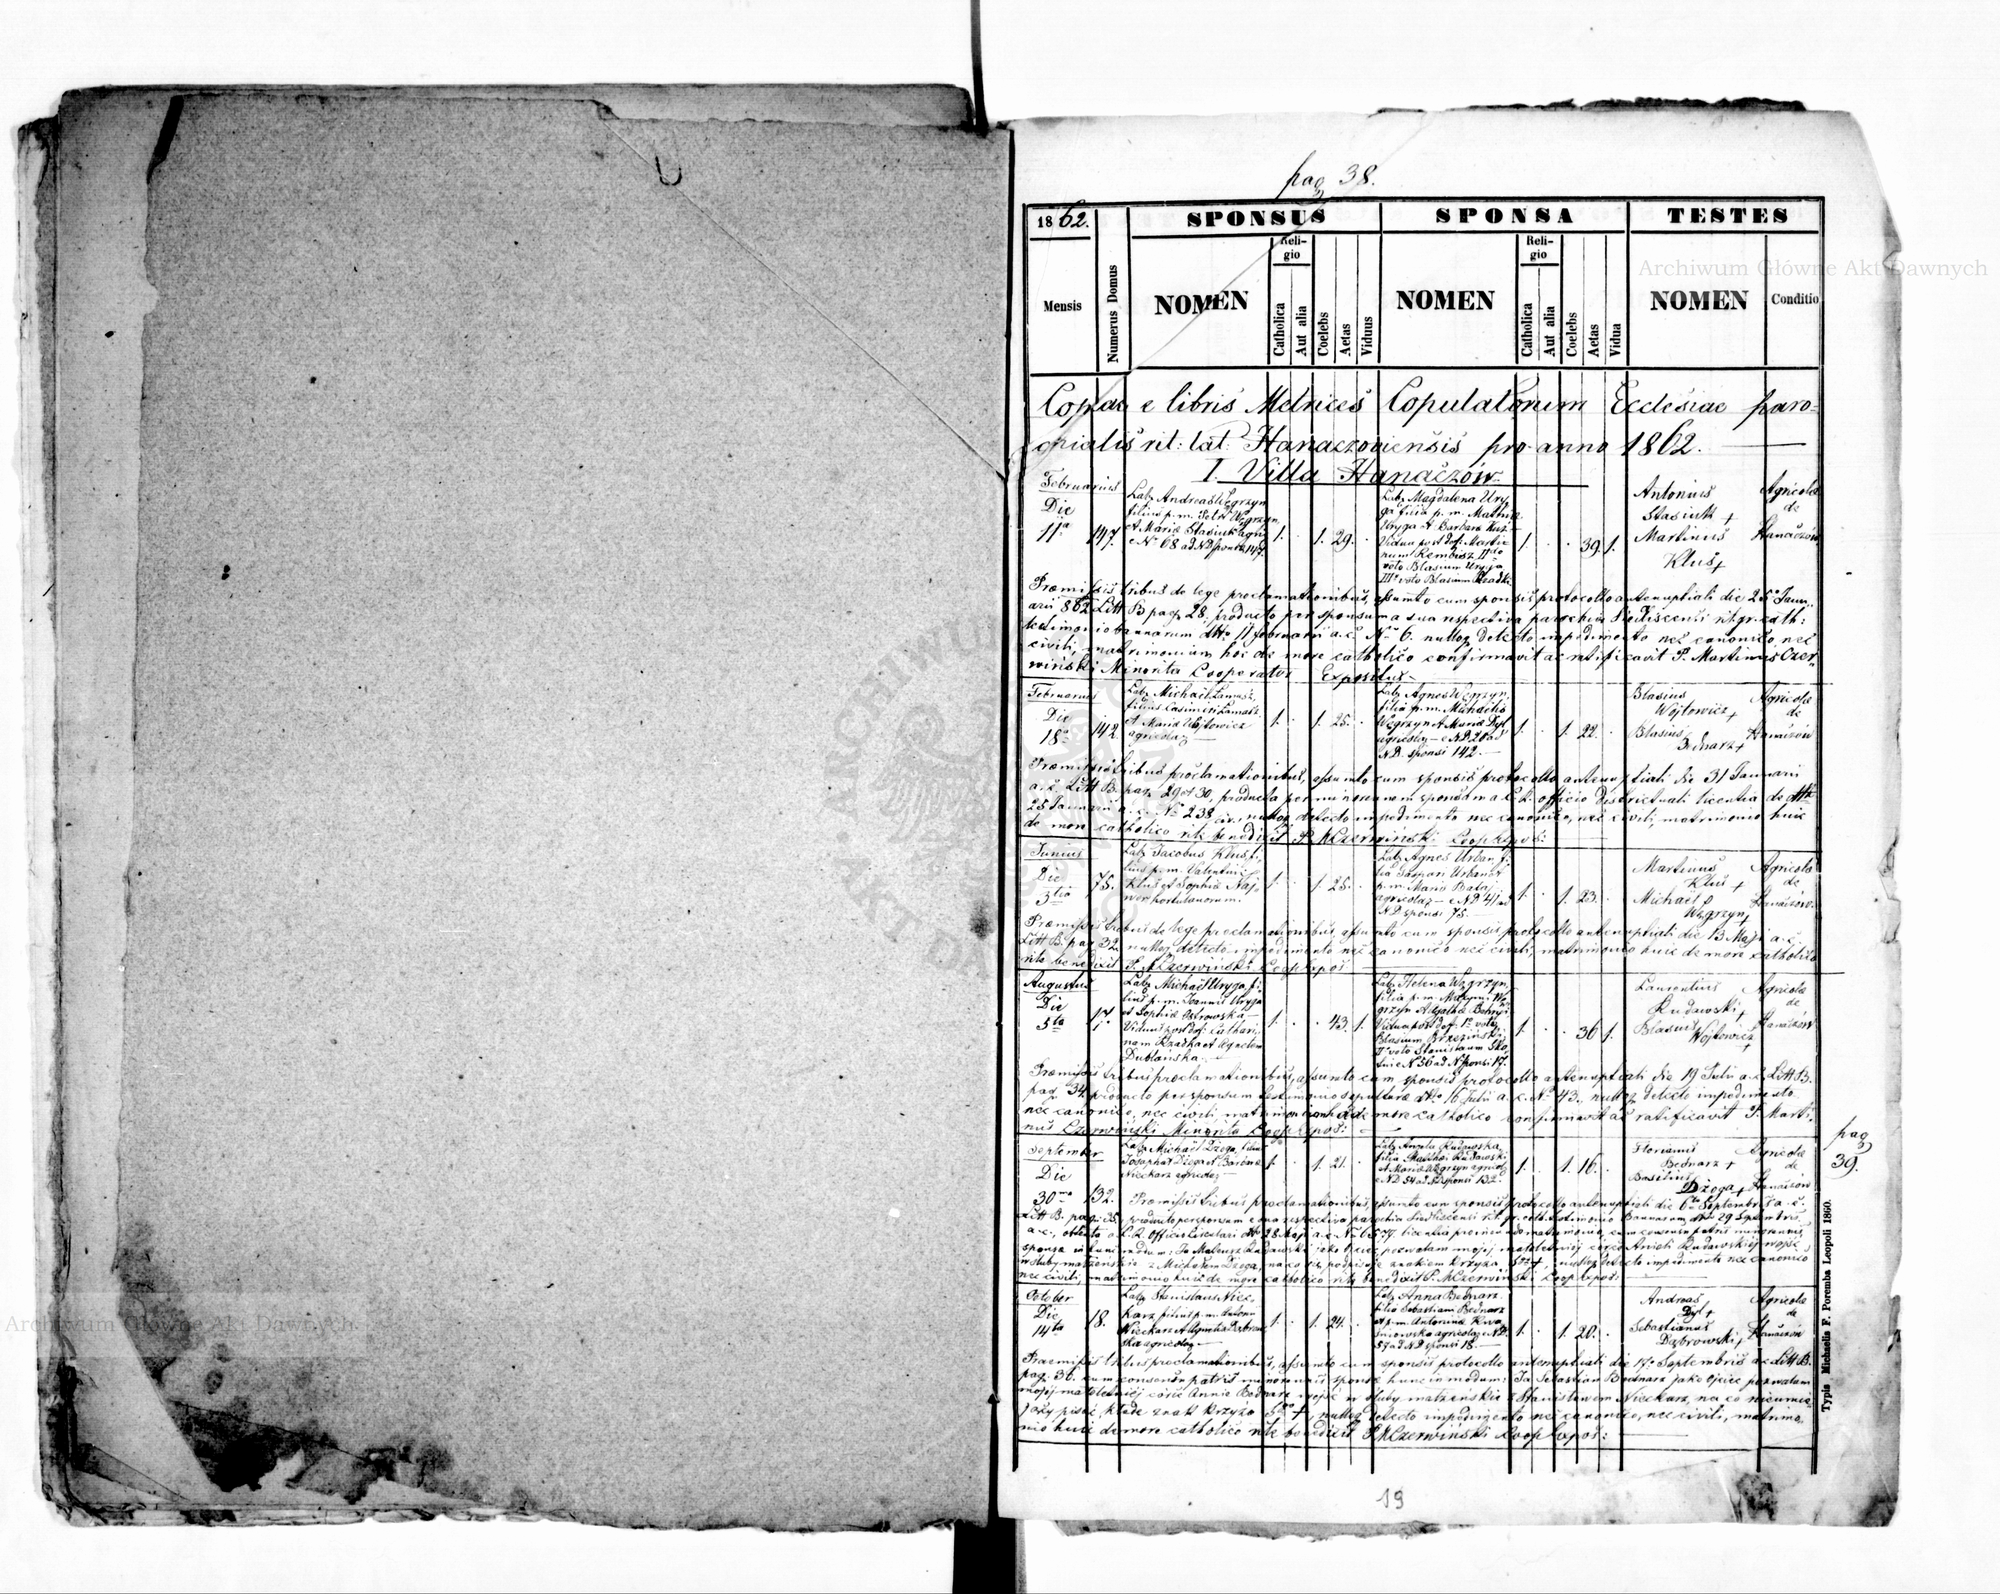 pag 38.
1862.
SPONSUS
SPONSA
TESTES
Mensis
Numerus Domus
NOMEN
Religio
Catholica
Aut alia
Coelebs
Aetas
Viduus
NOMEN
Religio
Catholica
Aut alia
Coelebs
Aetas
Vidua
NOMEN
Conditio
Archiwum Główne Akt Dawnych
Copiae e libris Metrices Copulatorum Ecclesiae paro=
chialis rit: lat: Hanaczoviensis pro anno 1862.
I. Villa Hanaczów
Februarius
Die
11a
147.
Lab. Andreas Węgrzyn
filius p. m. Petri Węgrzyn
et Mariae Stasiuk agri
e No 68 ad ND sponsae 147.
1. 1. 29.
Lab. Magdalena Ury-
ga filia p. m. Mathiae
Uryga et Barbara
Vidua post def. Marti
num Rembisz IIdo
voto Blasium Uryga
IIIo voto Blasium
1. 39. 1.
Antonius
Stasiuk +
Martinus
Kluś +
Agricolae
de
Hanaczów
Praemissis tribus de lege proclamationibus, assumto cum sponsis protocollo antenuptiali die 25 Janu-
arii 862 Litt B pag 28, producto per sponsum a sua respectiva parochia Siedliscensi rit. gr. cath:
testimonio bannorum dtto 11 februarii a. c. No 6. nulloq detecto impedimento nec canonico, nec
civili, matrimonium hoc de more catholico confirmavit ac ratificavit P. Martinus Czer-
wiński Minorita Cooperator Expositus
Februarius
Die
18a
142.
Lab. Michael Łamasz,
filius Casimiri Łamasz
et Maria Wojtowicz
agricolar
1. 1. 25.
Lab. Agnes Węgrzyn,
filia p. m. Michaelis
Węgrzyn et Maria Dyl
agricolar e ND 20 ad
ND. sponsi 142.
1. 1. 22.
Blasius
Wojtowicz +
Blasius
Bednarz +
Agricolae
de
Hanaczów
Praemissis tribus proclamationibus, assumto cum sponsis protocollo antenuptiali die 31 Januarii
a. c. Litt B. pag. 29 et 30, producta per minorenem sponsam a C. R. officio districtuali licentia de dtto
25 Januarii a. c. No 238 civ., nulloq detecto impedimento nec canonico, nec civili, matrimonio huic
de more catholico rite benedixit P. MCzerwiński Coop Expos:
Junius
Die
3tia
75.
Lab. Jacobus Kluś fi-
lius p. m. Valentini
Kluś et Sophia
hortulanorum.
1. 1. 25.
Lab. Agnes Urban, fi-
lia Gaspari Urban et
p. m. Maria
agricolar e ND 41 ad
ND sponsi 75.
1. 1. 23.
Martinus
Kluś +
Michael
Węgrzyn +
Agricolae
de
Hanaczów
Praemissis tribus de lege proclamationibus, assumto cum sponsis protocollo antenuptiali die 13 Maji a. c.
Litt B. pag 32. nulloq detecto impedimento nec canonico nec civili, matrimonio huic de more catholico
rite benedixit P. MCzerwiński Coop Expos
Augustus
Die
5ta
17.
Lab. Michael Uryga, fi-
lius p. m. Joannis Uryga
et Sophia Ostrowska
Viduus post def. Cathari-
nam et Agnetem
Dublańska
1. 43. 1.
Lab. Helena Węgrzyn,
filia p. m. Maximi Wę-
grzyn et Agathae
Vidua post def. 1o voto
Blasium Brzeziński
IIo voto Stanislaum
e N 56 ad N sponsi 17.
1. 36 1.
Laurentius
Rudawski +
Blasius
Wojtowicz +
Agricolae
de
Hanaczów
Praemissis tribus proclamationibus, assumto cum sponsis protocollo antenuptiali die 19 Julii a. c. Litt B.
pag 34, producto per sponsum testimonio sepulturae dtto 16 Julii a. c. No 43., nulloq detecto impedimento
nec canonico, nec civili matrimonium hoc de more catholico confirmavit ac ratificavit P. Marti-
nus Czerwiński Minorita Coop Expos:
pag
39.
September
Die
30ma
132.
Lab. Michael Dżoga, filius
Josaphat Dżoga et
Nieckarz agricolar
1. 1. 21.
Lab. Angela Rudawska
filia Mathaei Rudawski
et Maria Węgrzyn agricol
e ND 54 ad ND sponsi 132.
1. 1. 16.
Florianus
Bednarz +
Basilius
Dżoga +
Agricolae
de
Hanaczów
Praemissis tribus proclamationibus, assumto cum sponsis protocollo antenuptiali die 6 Septembris a. c.
Litt B. pag. 35, producto per sponsum e sua respectiva parochia Siedliscensi rit. gr. cath. testimonio Bannorum dtto 29 Septembris
a. c., obtenta a C. R. Officio Circulari dtto 28 Maji a. c. No 6579. licentia
sponsa in hunc modum: Ja Mateusz Rudawski jako Ojciec pozwalam mojej małoletniej córce Anieli Rudawskiej wejść
w śluby małżeńskie z Michałem Dżoga, na co się podpisuję znakiem krzyża +, nulloq detecto impedimento nec canonico
nec civili, matrimonio huic de more catholico rite benedixit P. MCzerwiński Coop Expos:
October
Die
14ta
18.
Lab. Stanislaus Niec-
karz filius p. m. Antonii
Nieckarz et Agnetis Dąbrow-
ska agricolar
1. 1. 24.
Lab. Anna Bednarz
filia Sebastiani Bednarz
et p. m. Antoninae Kwa-
śniowska agricolar e ND.
57 ad ND sponsi 18.
1. 1. 20.
Andreas
Dyl +
Sebastianus
Dąbrowski +
Agricolae
de
Hanaczów
Praemissis tribus proclamationibus, assumto cum sponsis protocollo antenuptiali die 17 Septembris a. c. Litt B.
pag. 36. cum consensu patris minorennis sponsae hunc in modum: Ja Sebastian Bednarz jako Ojciec pozwalam
mojej małoletniej córce Annie Bednarz wejść w śluby małżeńskie z Stanisławem Nieckarz, na co nieumie-
jący pisać kładę znak krzyża +, nulloq detecto impedimento nec canonico, nec civili, matrimo-
nio huic de more catholico rite benedixit P. MCzerwiński Coop Expos:
Typis Michaelis F. Poremba Leopoli 1860.
19
Archiwum Główne Akt Dawnych
ARCHIWUM GŁÓWNE AKT DAWNYCH